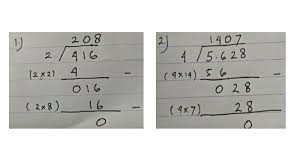 1) 208
2 / 416
(2x2) 4 -
016
(2x8) 16 -
0
2) 1407
4 / 5.628
(4x14) 56 -
028
(4x7) 28 -
0